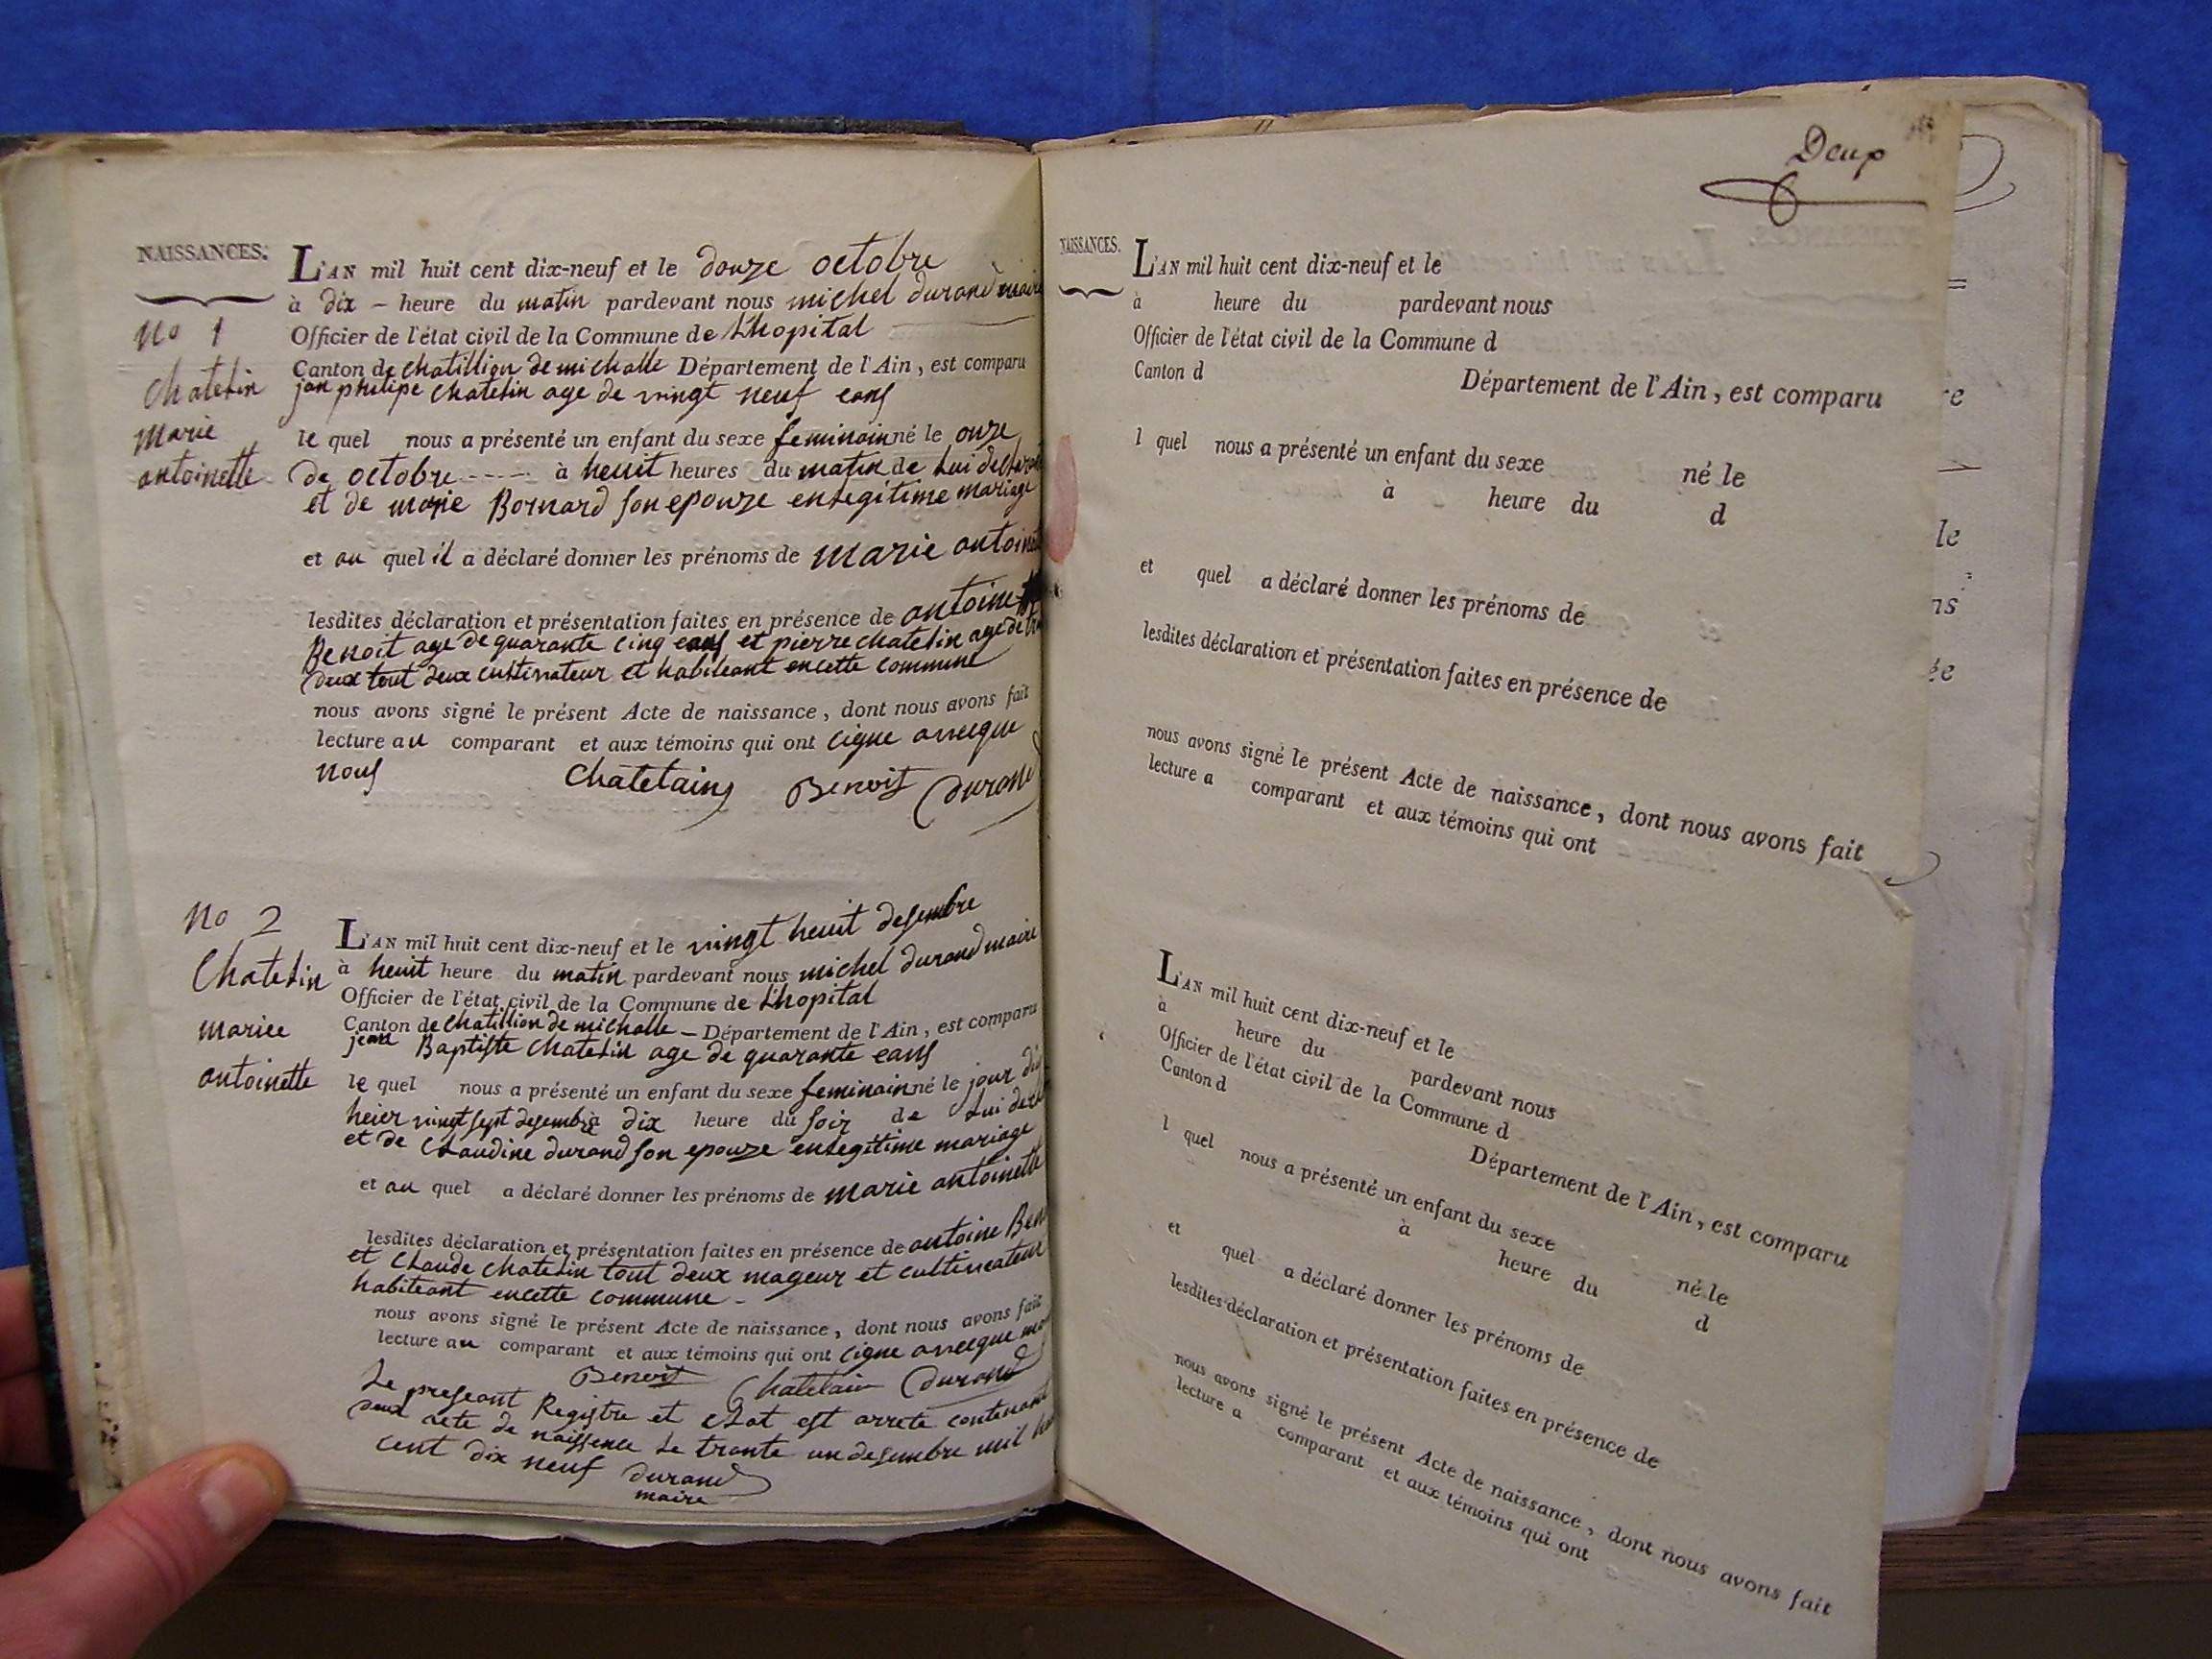 NAISSANCES.
L'AN mil huit cent dix-neuf et le douze octobre
à dix - heure du matin pardevant nous michel durand maire
Officier de l'état civil de la Commune de L'hopital
Canton de chatillion de michalle Département de l'Ain, est comparu
jan philipe chatelin age de vingt neuf eans
le quel nous a présenté un enfant du sexe feminain né le onze
de octobre à heuit heures du matin de Lui
et de marie Bornard son epouze enlegitime mariage
et au quel il a déclaré donner les prénoms de marie
lesdites déclaration et présentation faites en présence de antoine
Benoit age de quarante cinq eans et pierre chatelin age de
deux tout deux cultivateur et habiteant encette commune
nous avons signé le présent Acte de naissance, dont nous avons fait
lecture au comparant et aux témoins qui ont cigne avecque
nous Chatelain Benoit durand
No 1
Chatelin
marie
antoinette
No 2
Chatelin
mariee
antoinette
L'AN mil huit cent dix-neuf et le vingt heuit desembre
à heuit heure du matin pardevant nous michel durand maire
Officier de l'état civil de la Commune de L'hopital
Canton de chatillion de michalle - Département de l'Ain, est comparu
jean Baptiste chatelin age de quarante eans
le quel nous a présenté un enfant du sexe feminain né le jour
heier vingt sept desembre à dix heure du soir de Lui
et de Claudine durand son epouze enlegitime mariage
et au quel a déclaré donner les prénoms de marie antoinette
lesdites déclaration et présentation faites en présence de antoine
et Claude chatelin tout deux mageur et cultivateur
habiteant encette commune -
nous avons signé le présent Acte de naissance, dont nous avons fait
lecture au comparant et aux témoins qui ont cigne avecque
Benoit Chatelain durand
Le preseant Registre et Etat est arrete contenant
deux acte de naissence Le trante un desembre mil
cent dix neuf durand
maire
Deux
NAISSANCES.
L'AN mil huit cent dix-neuf et le
à heure du pardevant nous
Officier de l'état civil de la Commune d
Canton d Département de l'Ain, est comparu
l quel nous a présenté un enfant du sexe né le
à heure du d
et quel a déclaré donner les prénoms de
lesdites déclaration et présentation faites en présence de
nous avons signé le présent Acte de naissance, dont nous avons fait
lecture a comparant et aux témoins qui ont
L'AN mil huit cent dix-neuf et le
à heure du pardevant nous
Officier de l'état civil de la Commune d
Canton d Département de l'Ain, est comparu
l quel nous a présenté un enfant du sexe né le
à heure du d
et quel a déclaré donner les prénoms de
lesdites déclaration et présentation faites en présence de
nous avons signé le présent Acte de naissance, dont nous avons fait
lecture a comparant et aux témoins qui ont